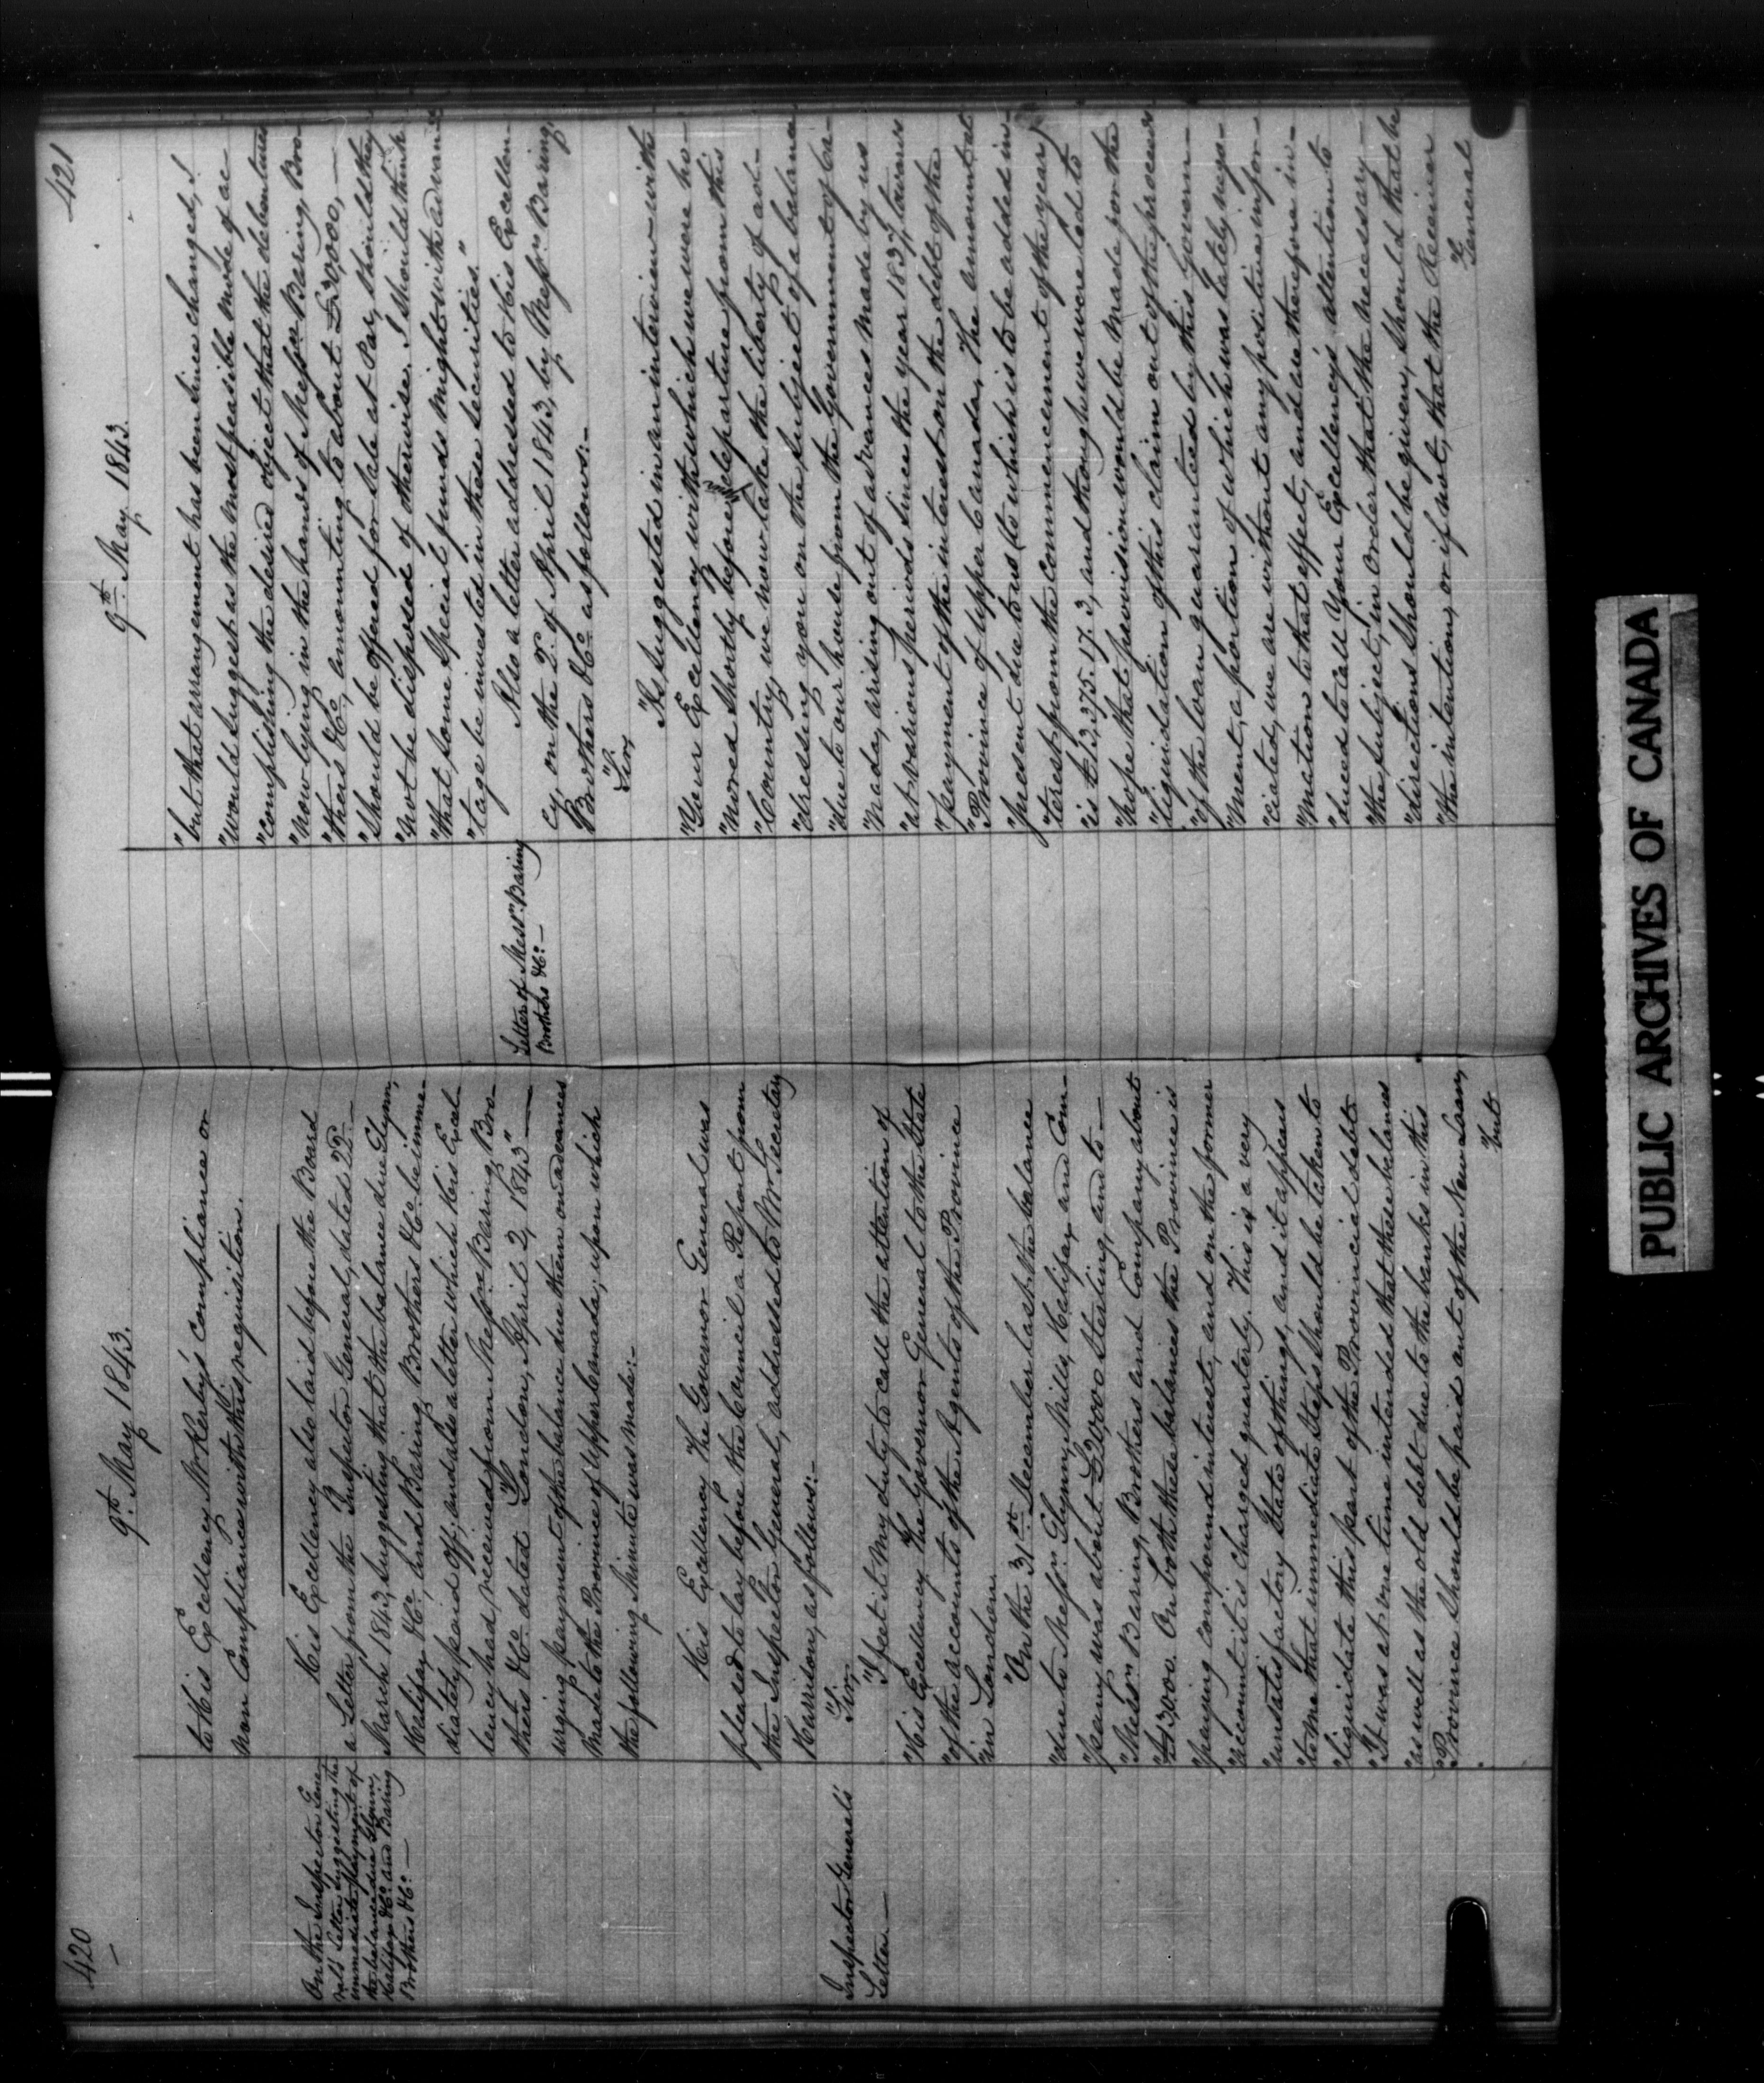 420
9th. May 1843.
to His Excellency Mr Kerby's compliance or
non Compliance with this requisition.
On the Inspector Gene-
ral's Letter suggesting the
immediate payment of
the balance due Glynn,
Halifax &Co. and Baring
Brothers &Co. —
His Excellency also laid before the Board
a Letter from the Inspector General, dated 22d. —
March 1843, suggesting that the balance due Glynn,
Halifax &Co. and Baring Brothers &Co. be imme-
diately paid off; and also a letter which His Excel-
lency had received from Messrs. Baring, Bro-
thers &Co. dated "London, April 3, 1843" —
urging payment of the balance due them on advances
made to the Province of Upper Canada; upon which
the following Minute was made:-
His Excellency The Governor General was
pleased to lay before the Council a Report from
the Inspector General, addressed to Mr Secretary
Harrison, as follows:-
Inspector General's
Letter —
"Sir,
"I feel it my duty to call the attention of
"His Excellency The Governor General to the State
"of the accounts of the Agents of the Province
"in London.
"On the 31st. December last the balance
"due to Messrs. Glynn, Mills, Halifax, and Com-
"pany was about £20,000 Sterling, and to —
"Messrs. Baring, Brothers and Company about
"£13,000. On both these balances the Province is
"paying compound interest, and on the former
"account it is charged quarterly. This is a very
"unsatisfactory State of things, and it appears
"to me that immediate Steps should be taken to
"liquidate this part of the Provincial debt.
"It was at one time intended that these balances
"as well as the old debt due to the banks in this
"Province should be paid out of the New Loan,
"but
421
9th. May 1843.
"but that arrangement has been since changed, I
"would suggest as the most feasible mode of ac-
"complishing the desired object that the debentures
"now lying in the hands of Messrs Baring, Bro-
"thers &Co., amounting to about £20,000, —
"should be offered for Sale at Par, should they
"not be disposed of otherwise. I should think
"that some Special funds might with advan-
"tage be invested in these Securities."
Letter of Messrs. Baring
Brothers &Co. —
Also a letter addressed to His Excellen-
cy, on the 3d. of April 1843, by Messrs. Baring,
Brothers &Co. as follows:-
"Sir,
"As suggested in an interview with
"Your Excellency with which we were ho-
"nored shortly before departure from this
"Country, we now take the liberty of ad-
"dressing you on the subject of a balance
"due to our house from the Government of Ca-
"nada, arising out of advances made by us
"at various periods since the year 1837, towards
"payment of the interest on the debt of the
"Province of Upper Canada. The amount at
"present due to us (to which is to be added in-
"terest from the commencement of the year)
"is £13,375.17.3, and though we were led to
"hope that provision would be made for the
"liquidation of this claim out of the proceeds
"of the loan guaranteed by this Govern-
"ment, a portion of which was lately nego-
"ciated, we are without any positive infor-
"mation to that effect, and are therefore in-
"duced to call Your Excellency's attention to
"the subject, in order that the necessary —
"directions should be given, should that be
"the intention, or if not, that the Receiver
"General
PUBLIC ARCHIVES OF CANADA